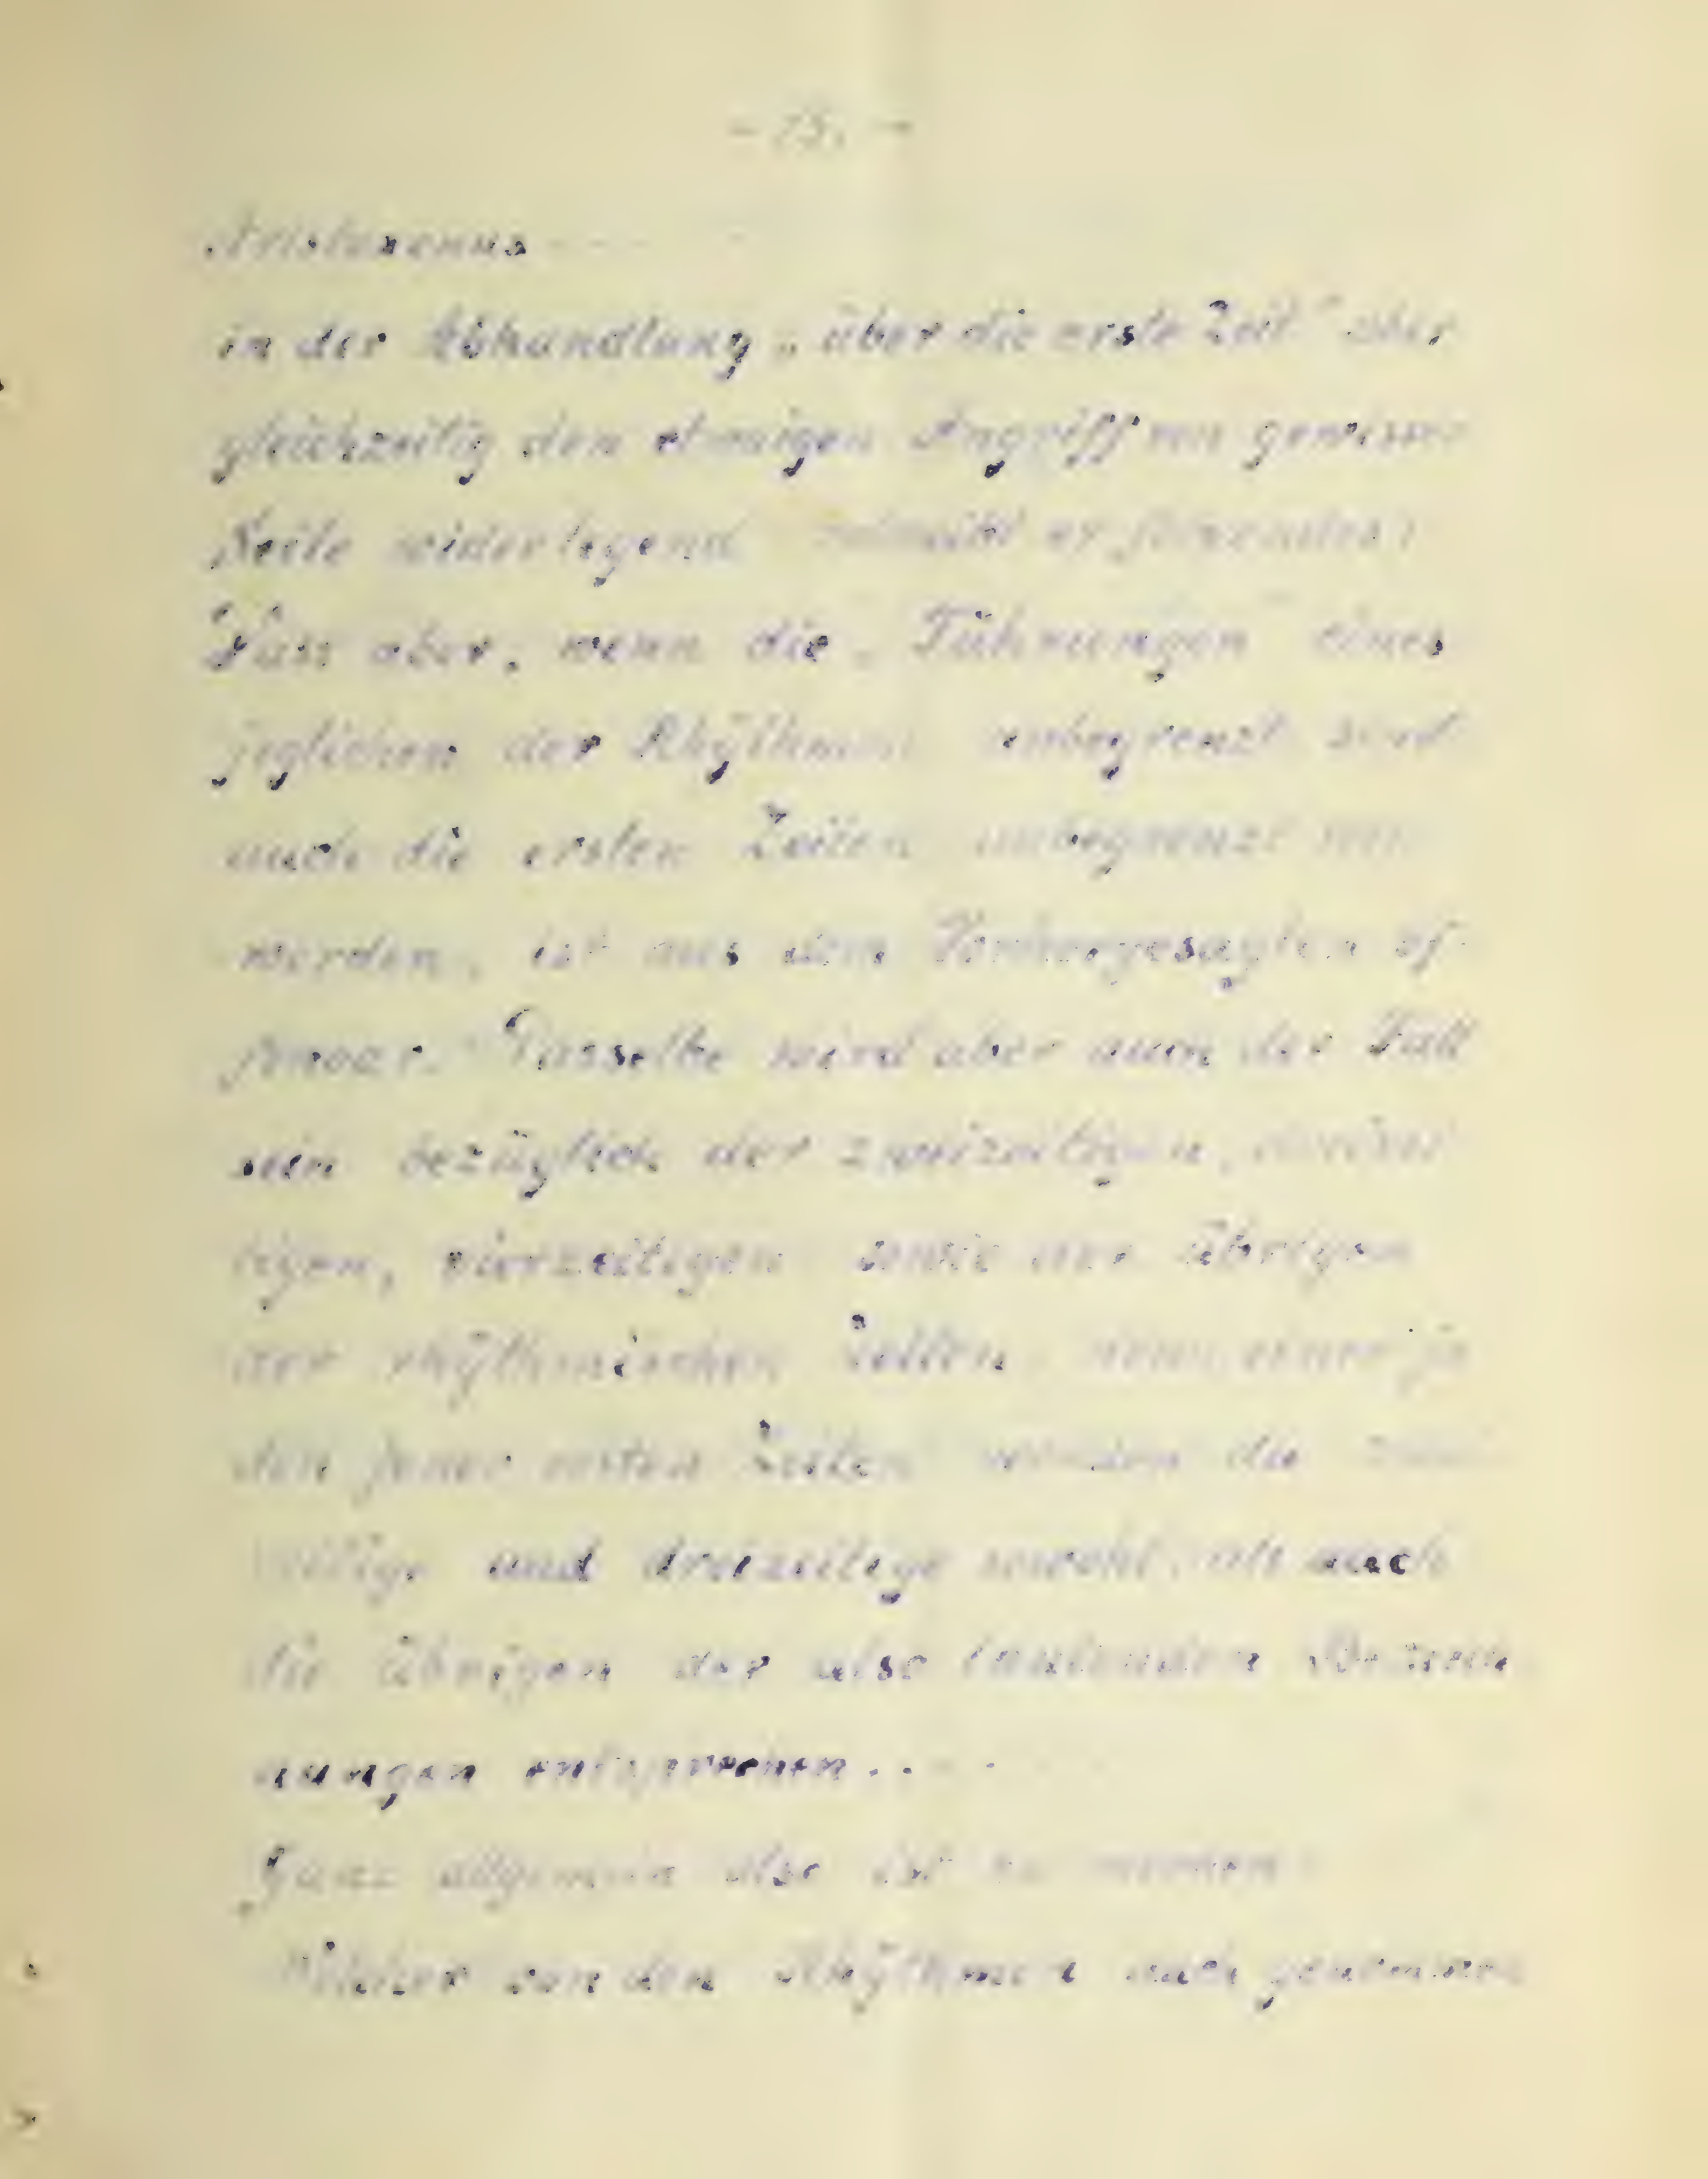 - 75. -
Aristoxenus
in der Abhandlung „über die erste Zeit" aber
gleichzeitig den etwaigen Angriff von gewisser
Seite widerlegend er folgendes:
Dass aber, wenn die „Führungen" eines
jeglichen der Rhÿthmen unbegrenzt sind
auch die ersten Zeiten unbegrenzt sein
werden, ist aus dem Vorhergesagten of-
fenbar. Dasselbe wird aber auch der Fall
sein bezüglich der zweizeitigen, dreizei-
tigen, vierzeitigen sowie der übrigen
der rhÿthmischen Zeiten, denn einer je-
den jener ersten Zeiten werden die zwei-
zeitige und dreizeitige sowohl, als auch
die übrigen der also lautenden Bezeich-
nungen entsprechen...
Ganz allgemein also ist zu merken:
Welcher von den Rhÿthmen auch genommen